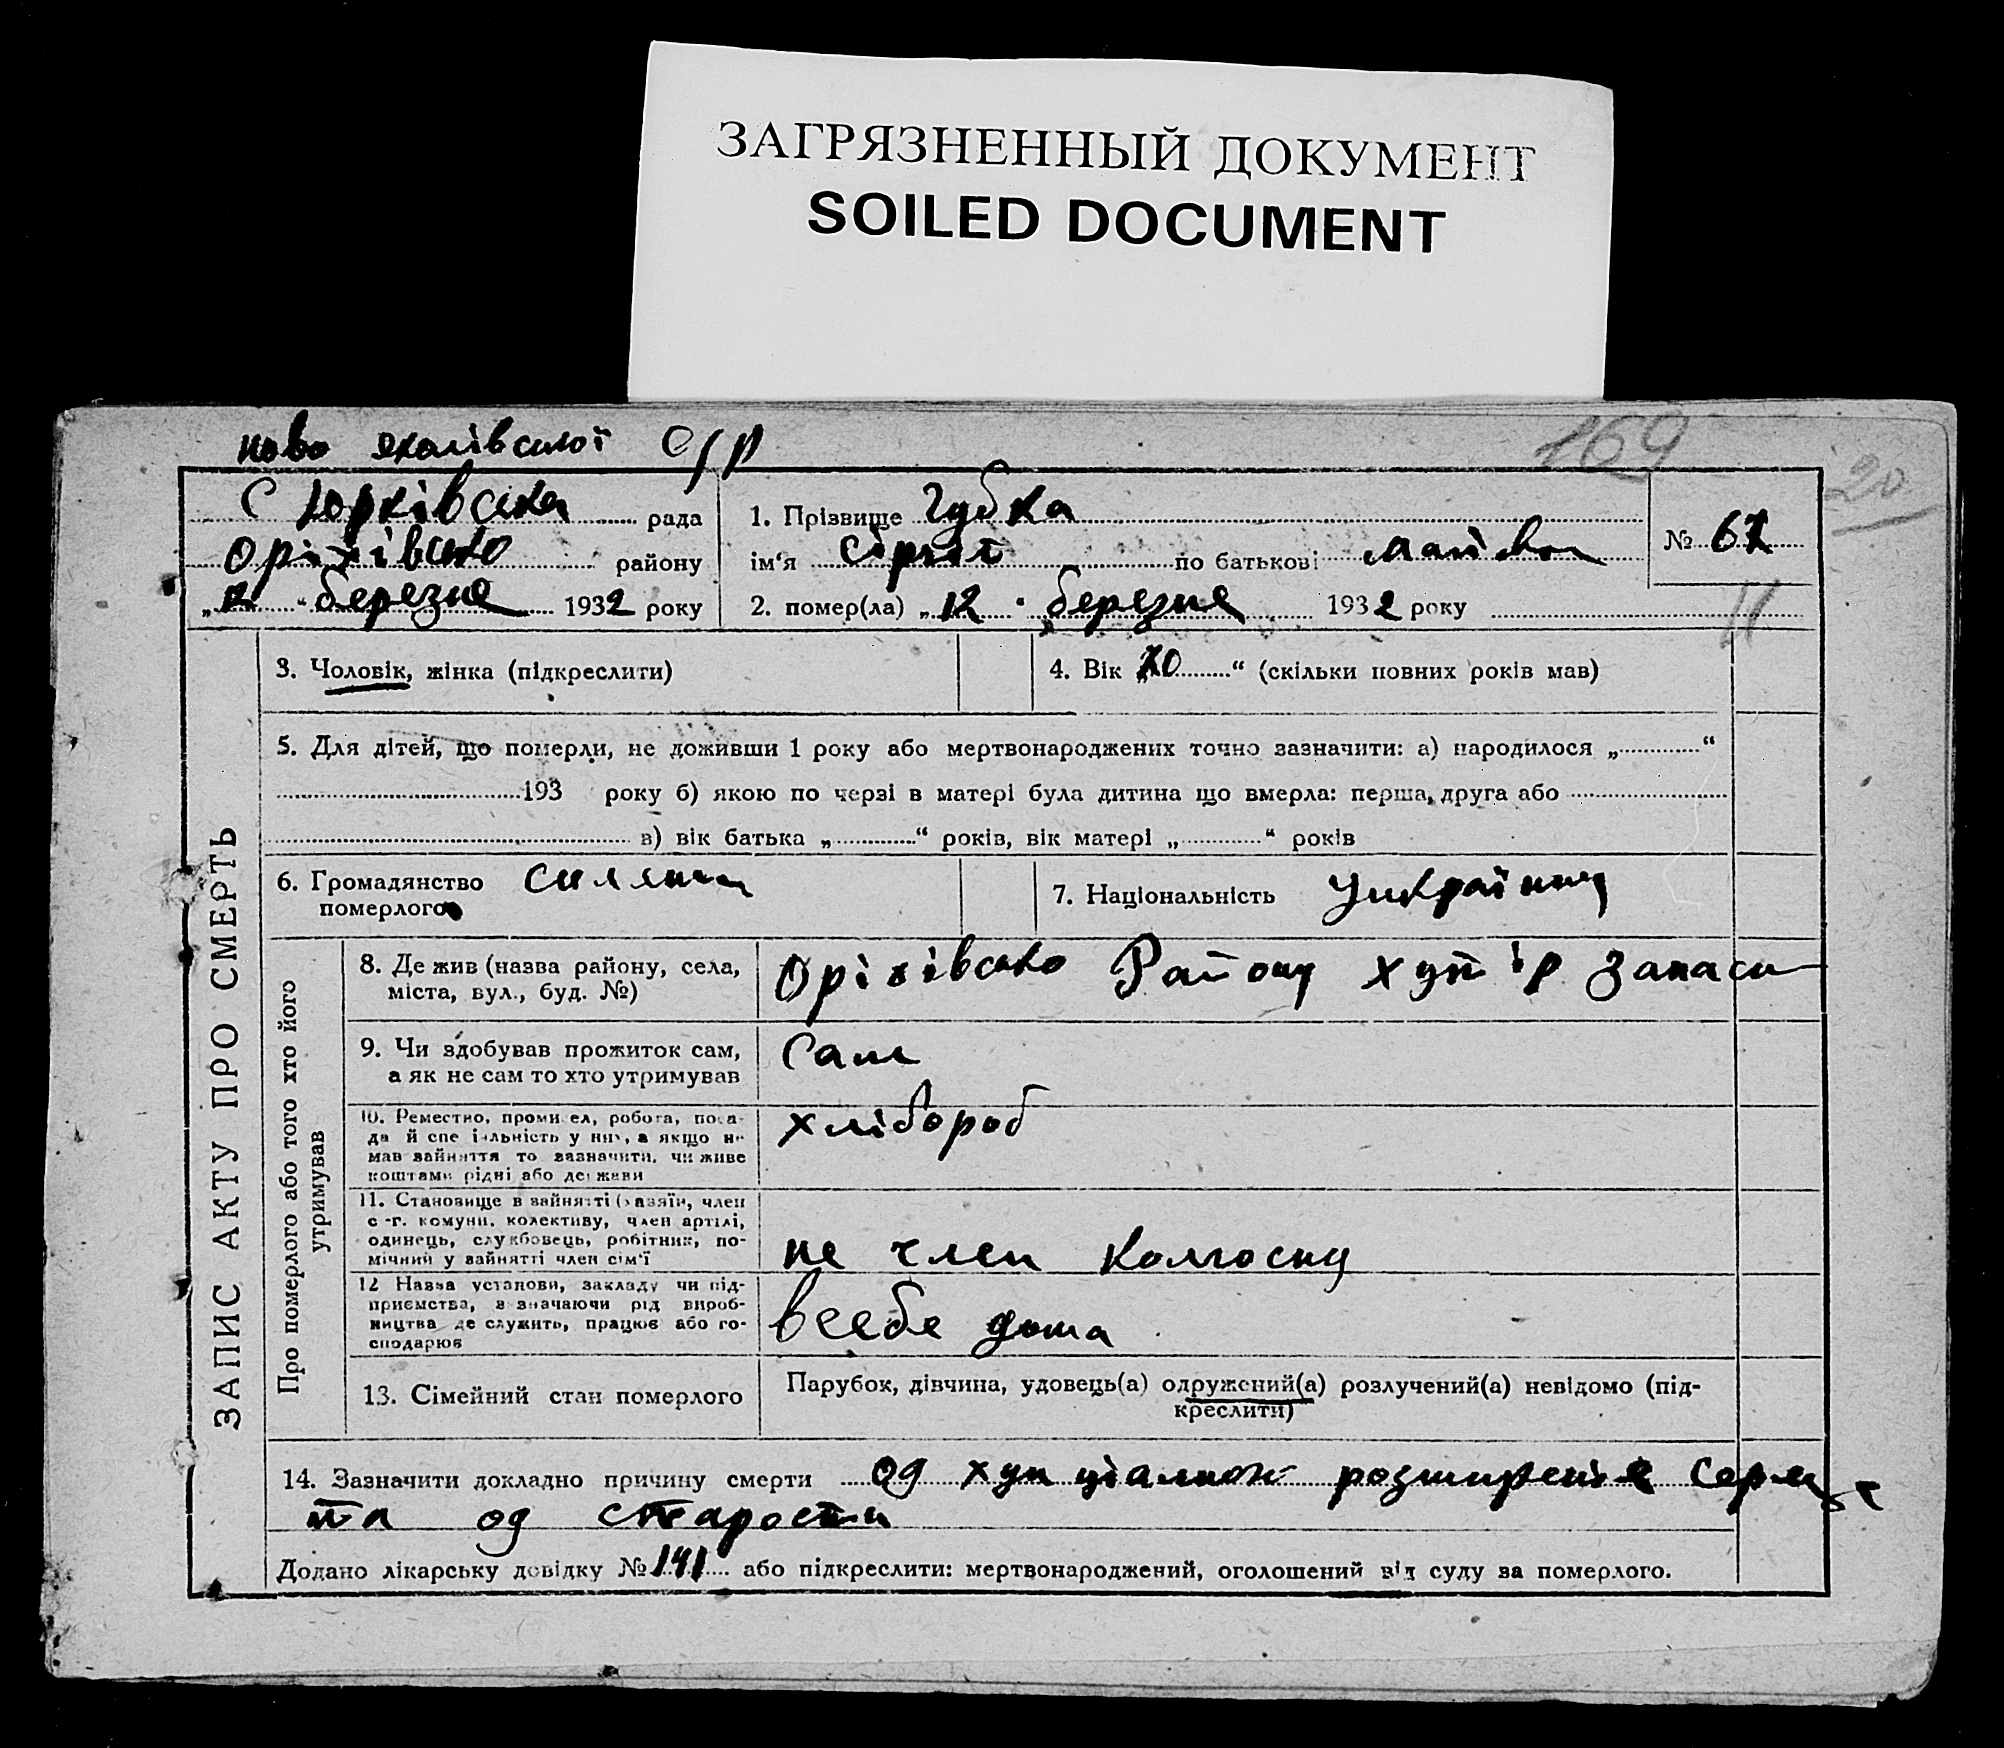 ЗАГРЯЗНЕННЫЙ ДОКУМЕНТ
SOILED DOCUMENT
169
20
ново с/р
С Юрківська рада
Оріхівсько району
„12“ березня 1932 року
1. Прізвище Губка
ім'я по батькові
№ 67
2. помер(ла) „12“ березня 1932 року
ЗАПИС АКТУ ПРО СМЕРТЬ
3. Чоловік, жінка (підкреслити)
4. Вік 70“ (скільки повних років мав)
5. Для дітей, що померли, не доживши 1 року або мертвонароджених точно зазначити: а) народилося „ “
193 року б) якою по черзі в матері була дитина що вмерла: перша, друга або
в) вік батька „ “ років, вік матері „ “ років
6. Громадянство
померлого
7. Національність
Про померлого або того хто його
утримував
8. Де жив (назва району, села,
міста, вул., буд. №)
Оріхівсько Району хутір Запаси
9. Чи здобував прожиток сам,
а як не сам то хто утримував
Сам
10. Реместно, промисел, робота, поса-
да й спеціяльність у них, а якщо не
мав вайняття то вазначити, чи живе
коштами рідні або держави
хлібороб
11. Становище в вайнятті (хазяїн, член
с.-г. комуни, колективу, член артілі,
одинець, службовець, робітник, по-
мічний у вайнятті член сім'ї
не член колгоспу
12 Назва установи, закладу чи під-
приємства, взначаючи рід вироб-
ництва де служить, працює або го-
сподарює
всебе дома
13. Сімейний стан померлого
Парубок, дівчина, удовець(а) одружений(а) розлучений(а) невідомо (під-
креслити)
14. Зазначити докладно причину смерти од розширенія серця
та од старости
Додано лікарську довідку № 141 або підкреслити: мертвонароджений, оголошений від суду за померлого.